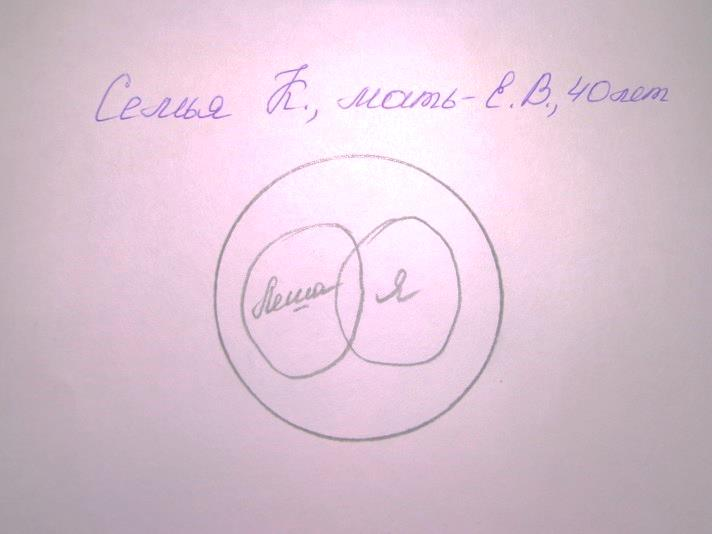 Семья К., мать- Е.В., 40 лет
Леша Я